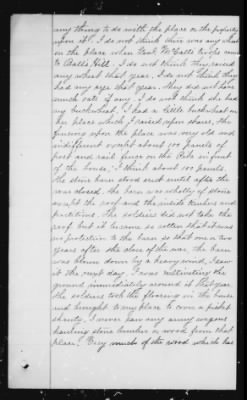 any thing to do with the place or the property
upon it. I do not think there was any wheat
on the place when Genl McCall's troops came
to Balls Hill. I do not think they raised
any wheat that year. I do not think they
had any rye that year. They did not have
much oats if any. I do not think she had
any buckwheat. I had a little buckwheat on
her place which I raised upon share. The
fencing upon the place was very old and
indifferent except about 100 panels of
post and rail fence on the Pike in front
of the house, I think about 100 panels.
The stone barn stood until after the
war closed. The barn was wholly of stone
except the roof and the inside timbers and
partitions. The soldiers did not take the
roof but it became so rotten that it was
no protection to the barn so that one or two
years after the close of the war the barn
was blown down by a heavy wind, I saw
it the next day. I was cultivating the
ground immediately around it that year
the soldiers took the flooring in the house
and brought to my place to cover a picket
shanty. I never saw any army wagons
hauling stone timber or wood from that
place. Very much of the wood which has